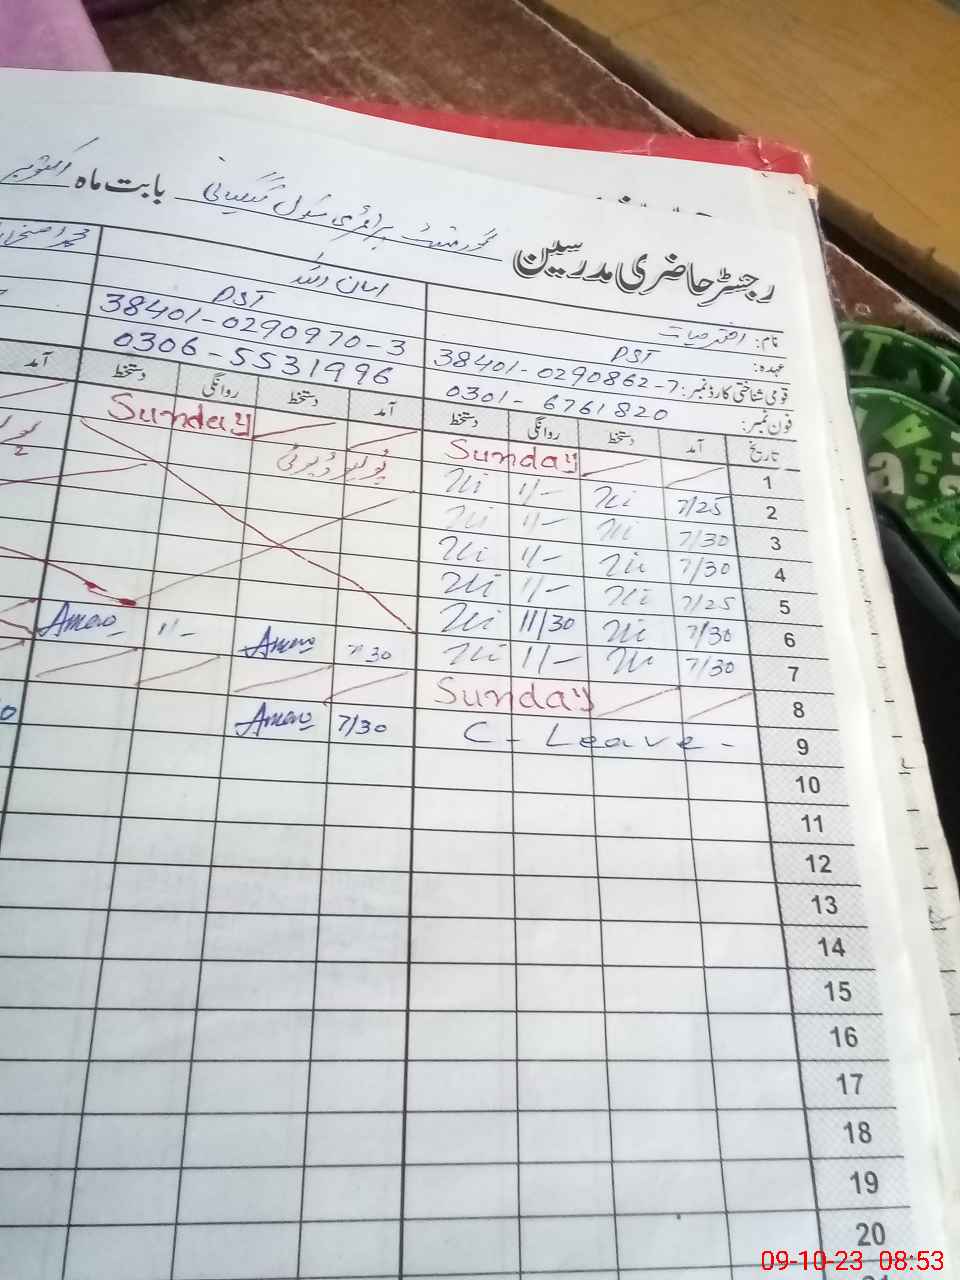 رجسٹر حاضری مدرسین گورنمنٹ پرائمری سکول بابت ماہ اکتوبر
نام: اختر حیات امان اللہ محمد
عہدہ: PST PST
قومی شناختی کارڈ نمبر: 38401-0290862-7 38401-0290970-3
فون نمبر: 0301-6761820 0306-5531996
تاریخ آمد دستخط روانگی دستخط آمد دستخط روانگی دستخط آمد
1 Sunday Sunday
2 7/25 1/- پولیو ڈیوٹی
3 7/30 1/-
4 7/30 1/-
5 7/25 1/-
6 7/30 11/30
7 7/30 1/- 7/30 Aman 1/- Aman
8 Sunday
9 C - Leave - 7/30 Aman
10
11
12
13
14
15
16
17
18
19
20
09-10-23 08:53